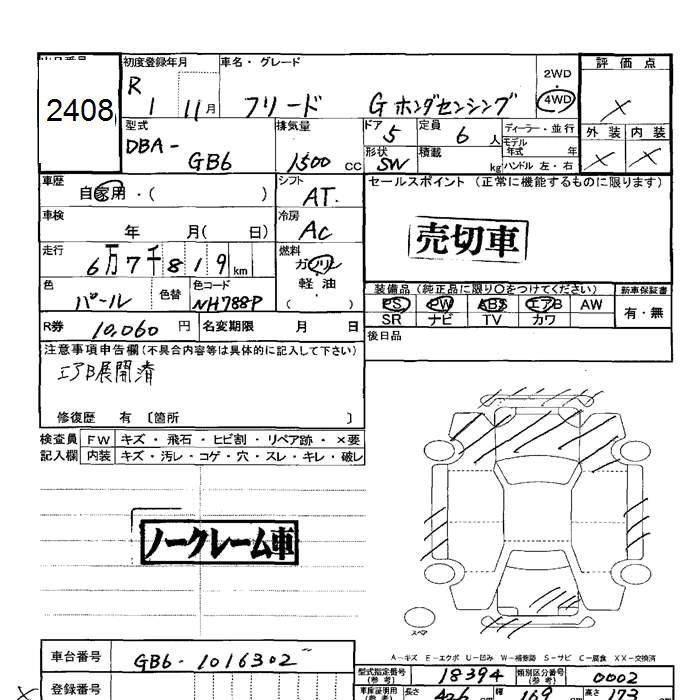 2408
初度登録年月
R 1 11月
車名・グレード
フリード G ホンダセンシング
2WD
4WD
評価点
×
型式
DBA-
GB6
排気量
1500 CC
ドア 5
定員 6 人
ディーラー・並行
モデル年式 年
形状 SW
積載 kg
ハンドル 左・右
外装 内装
× ×
車歴
自家用・( )
シフト
AT.
セールスポイント(正常に機能するものに限ります)
車検
年 月( 日)
冷房
AC
売切車
走行
6万7千819km
燃料
ガソリン
軽・油
( )
色
パール
色替
色コード
NH788P
装備品(純正品に限り○をつけてください)
新車保証書
PS PW ABS エアB AW
SR ナビ TV カワ
有・無
R券 10,060円
名変期限 月 日
後日品
注意事項申告欄(不具合内容等は具体的に記入して下さい)
エアB展開済
修復歴 有 〔箇所 〕
検査員 FW キズ・飛石・ヒビ割・リペア跡・×要
記入欄 内装 キズ・汚レ・コゲ・穴・スレ・キレ・破レ
ノークレーム車
スペア
A-キズ E-エクボ U-凹み W-補修跡 S-サビ C-腐食 XX-交換済
車台番号
GB6-1016302
型式指定番号(参考) 18394
類別区分番号(参考) 0002
登録番号
車庫証明用
長さ 426 cm 幅 169 cm 高さ 173